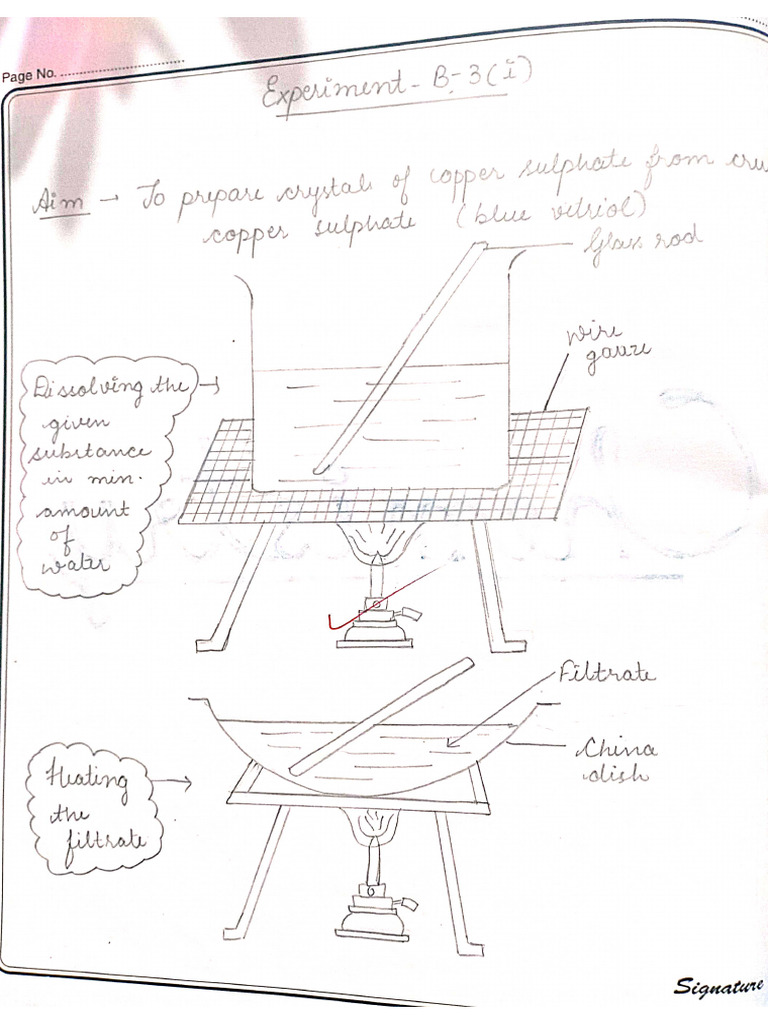 Page No.
Experiment - B-3(i)
Aim → To prepare crystals of copper sulphate from cru
copper sulphate (blue vitriol)
Glass rod
wire
gauze
Dissolving the
given
substance
in min.
amount
of
water
Filtrate
China
dish
Heating
the
filtrate
Signature